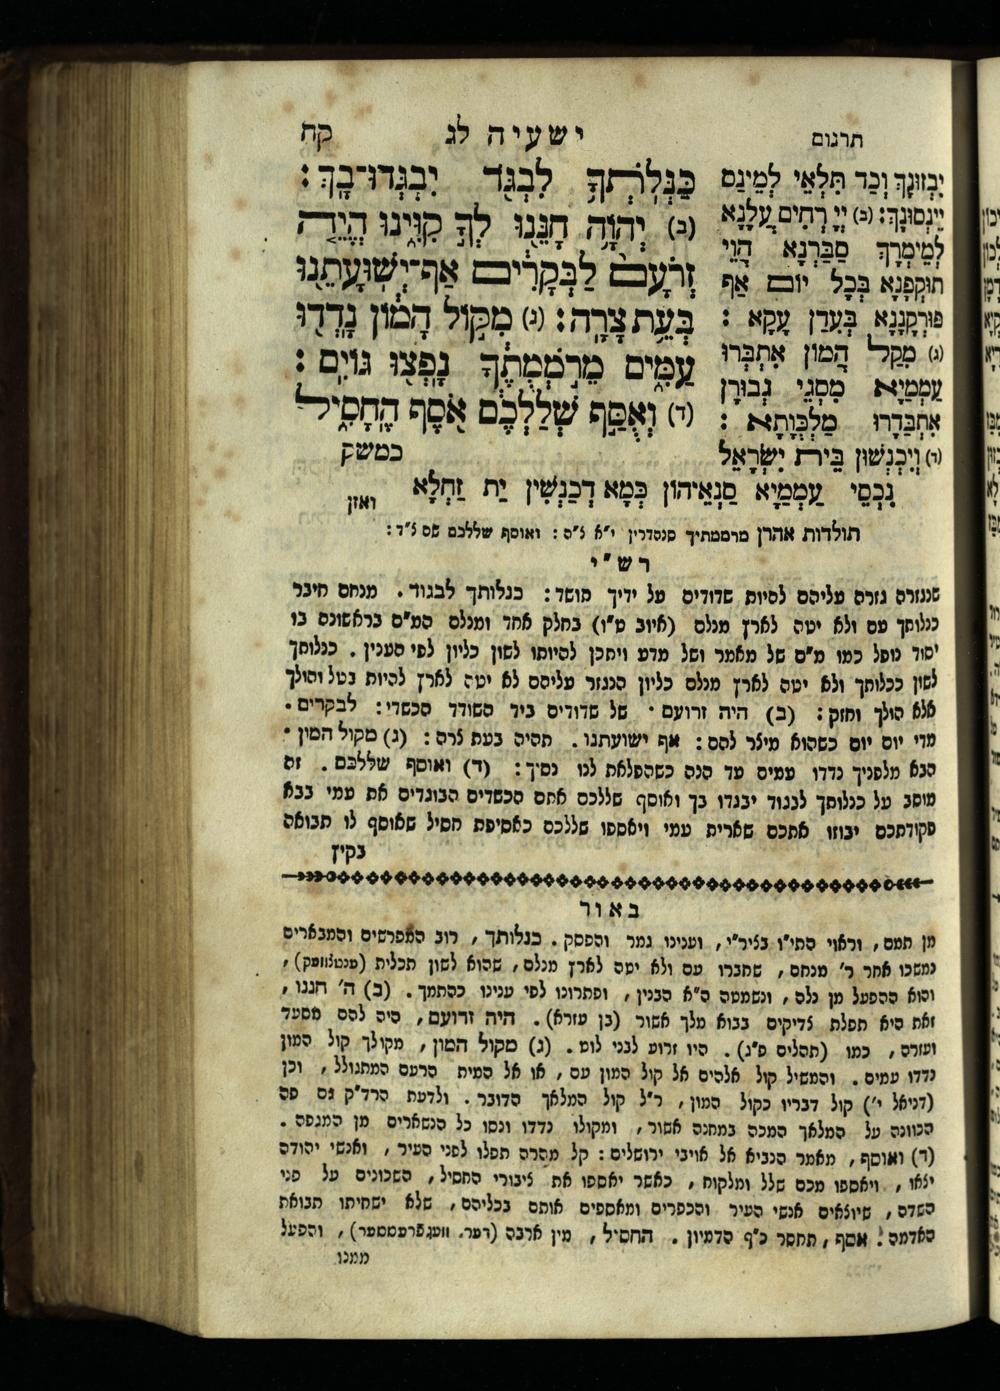 תרגום
ישעיה לג
קח
כַּנְּלֹתְךָ לִבְגֹּד יִבְגְּדוּ־בָךְ׃
(ב) יְהוָֹה חָנֵּנוּ לְךָ קִוִּינוּ הֱיֵה
זְרֹעָם לַבְּקָרִים אַף־יְשׁוּעָתֵנוּ
בְּעֵת צָרָה׃ (ג) מִקּוֹל הָמוֹן נָדְדוּ
עַמִּים מֵרֹמְמֻתֶךָ נָפְצוּ גּוֹיִם׃
(ד) וְאֻסַּף שְׁלַלְכֶם אֹסֶף הֶחָסִיל
כמשק
יִבְזוּנָךְ וְכַד תִּלְאֵי לְמֵינַס
יֵינְסוּנָךְ׃ (ב) יְיָ רְחִים עֲלָנָא
לְמֵימְרָךְ סַבַּרְנָא הֲוֵי
תוּקְפָנָא בְּכָל יוֹם אַף
פּוּרְקָנָנָא בְּעִדָן עָקָא׃
(ג) מִקַל הֲמוֹן אִתְבְּרוּ
עַמְמַיָא מִסְגֵי גְבוּרָן
אִתְבַּדָרוּ מַלְכְּוָתָא׃
(ד) וְיִכְנְשׁוּן בֵּית יִשְׂרָאֵל
נִכְסֵי עַמְמַיָא סַנְאֵיהוֹן כְּמָא דְכַנְשִׁין יַת זַחְלָא
ואזן
תולדות אהרן מרממתיך סנהדרין י״א צ״ה׃ ואוסף שללכם שם צ״ד׃
רש״י
שנגזרה גזרה עליהם להיות שדודים על ידיך תושד׃ כנלותך לבגוד. מנחם חיבר
כנלותך עם ולא יטה לארץ מנלם (איוב ט״ו) בחלק אחד ומנלם המ״ם בראשונה בו
יסוד נופל כמו מ״ם של מאמר ושל מדע ויתכן להיותו לשון כליון לפי הענין. כנלותך
לשון ככלותך ולא יטה לארץ מנלם כליון הנגזר עליהם לא יטה לארץ להיות בטל והולך
אלא הולך וחזק׃ (ב) היה זרועם. של שדודים ביד השודד הכשדי׃ לבקרים.
מדי יום יום כשהוא מיצר להם׃ אף ישועתנו. תהיה בעת צרה׃ (ג) מקול המון.
הבא מלפניך נדדו עמים עד הנה כשהפלאת לנו נסיך׃ (ד) ואוסף שללכם. זה
מוסב על כנלותך לבגוד יבגדו בך ואוסף שללכם אתם הכשדים הבוגדים את עמי בבא
פקודתכם יבוזו אתכם שארית עמי ויאספו שללכם כאסיפת חסיל שאוסף לו תבואה
בקיץ
באור
מן תמם, וראוי התי״ו בצירי, וענינו גמר והפסק. כנלותך, רוב המפרשים והמבארים
נמשכו אחר ר׳ מנחם, שחברו עם ולא יטה לארץ מנלם, שהוא לשון תכלית,
והוא ההפעל מן נלה, ונשמטה ה״א הבנין, ופתרונו לפי ענינו כהתמך. (ב) ה׳ חננו,
זאת היא תפלת צדיקים בבוא מלך אשור (בן עזרא). היה זרועם, היה להם מסעד
ועזרה, כמו (תהלים פ״ג). היו זרוע לבני לוט. (ג) מקול המון, מקולך קול המון
נדדו עמים. והמשיל קול אלהים אל קול המון עם, או אל המית הרעם המתגולל, וכן
(דניאל י׳) קול דבריו כקול המון, ר״ל קול המלאך הדובר. ולדעת הרד״ק גם פה
הכוונה על המלאך המכה במחנה אשור, ומקולו נדדו ונסו כל הנשארים מן המגפה.
(ד) ואוסף, מאמר הנביא אל אויבי ירושלים׃ קל מהרה תפלו לפני העיר, ואנשי יהודה
יצאו, ויאספו מכם שלל ומלקוח, כאשר יאספו את ציבורי החסיל, השכונים על פני
השדה, שיוצאים אנשי העיר והכפרים ומאספים אותם בכליהם, שלא ישחיתו תבואת
האדמה. אסף, תחסר כ״ף הדמיון. החסיל, מין ארבה, והפעל
ממנו